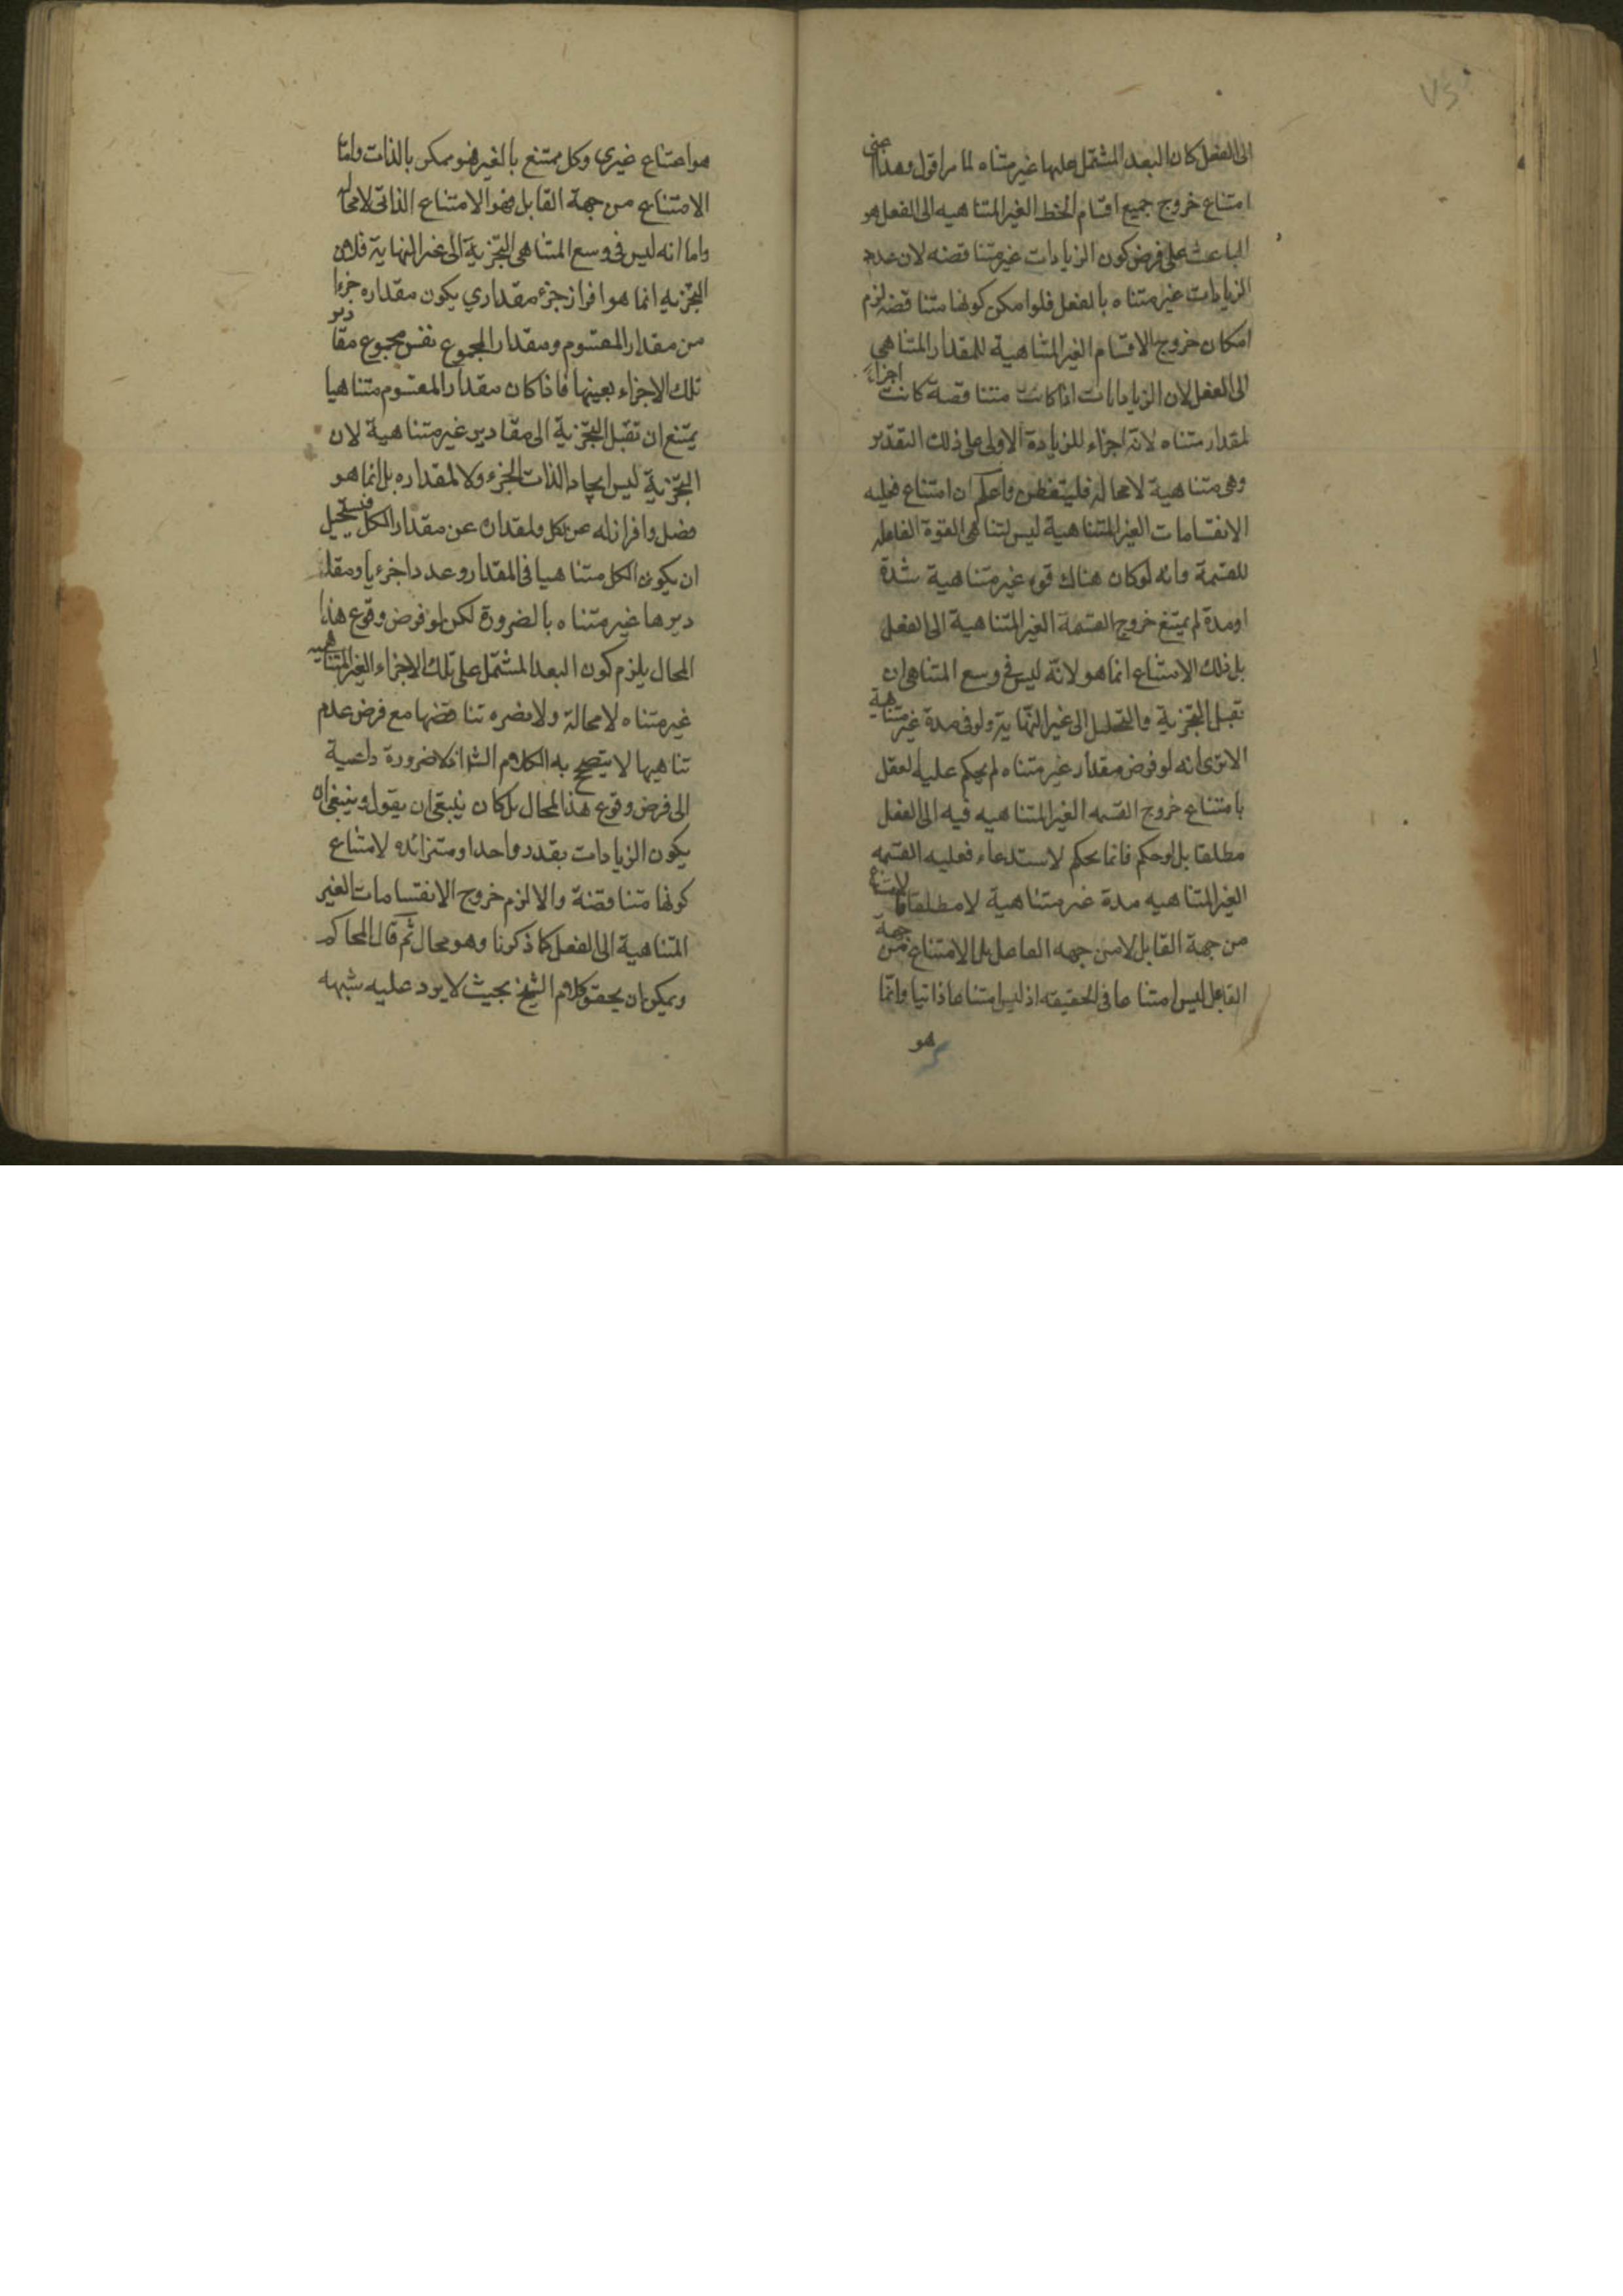 الى الفعل كان البعد المشتمل عليها غير متناه لما مر اقول وهذا اعنى
امتناع خروج جميع اقسام الخط الغير المتناهيه الى الفعل هو
الباعث على فرض كون الزيادات غير متناقصه لان عدد
الزيادات غير متناه بالفعل فلو امكن كونها متناقصه لزم
امكان خروج الاقسام الغير المتناهية للمقدار المتناهي
الى الفعل لان الزيادات اذا كانت متناقصة كانت اجزاء
لمقدار متناه لانه اجزاء للزيادة الاولى على ذلك التقدير
وهى متناهية لا محاله فليتفطن واعلم ان امتناع فعليه
الانقسامات الغير المتناهية ليس لتناهى القوة الفاعله
للقسمة وانه لو كان هناك قوه غير متناهية شدة
او مدة لم يمتنع خروج القسمة الغير المتناهية الى الفعل
بل ذلك الامتناع انما هو لانه ليس في وسع المتناهى ان
تقبل التجزية والتحليل الى غير النهاية ولو فى مدة غير متناهية
الا ترى انه لو فرض مقدار غير متناه لم يحكم عليه العقل
بامتناع خروج القسمه الغير المتناهيه فيه الى الفعل
مطلقا بل لو حكم فانما يحكم لاستدعاء فعليه القسمه
الغير المتناهيه مدة غير متناهية لا مطلقا فالامتناع
من جهة القابل لا من جهه الفاعل بل الامتناع من جهة
الفاعل ليس امتناعا فى الحقيقه اذ ليس امتناعا ذاتيا وانما
هو
هو امتناع غيرى وكل ممتنع بالغير فهو ممكن بالذات واما
الامتناع من جهة القابل فهو الامتناع الذاتى لا محاله
واما انه ليس فى وسع المتناهى التجزية الى غير النهاية فلان
التجزيه انما هو افراز جزء مقداري يكون مقداره جزءا
من مقدار المقسوم ومقدار المجموع نفس مجموع مقادير
تلك الاجزاء بعينها فاذا كان مقدار المقسوم متناهيا
يمتنع ان تقبل التجزية الى مقادير غير متناهية لان
التجزية ليس ايجادا لذات الجزء ولا لمقداره بل انما هو
فصل وافراز له عن كل ولمقداره عن مقدار الكل فيستحيل
ان يكون الكل متناهيا فى المقدار وعدد اجزءيا ومقا
ديرها غير متناه بالضرورة لكن لو فرض وقوع هذا
المحال يلزم كون البعد المشتمل على تلك الاجزاء الغير المتناهيه
غير متناه لا محالة ولا يضره تناقصها مع فرض عدم
تناهيها لا يتصحح به الكلام الشا اذ لا ضرورة داعية
الى فرض وقوع هذا المحال بل كان ينبغى ان يقول وينبغى ان
يكون الزيادات بقدر واحد او متزائده لامتناع
كونها متناقصة والا لزم خروج الانقسامات الغير
المتناهية الى الفعل كما ذكرنا وهو محال ثم قال المحاكم
ويمكن ان يحقق كلام الشيخ بحيث لا يرد عليه شبهه